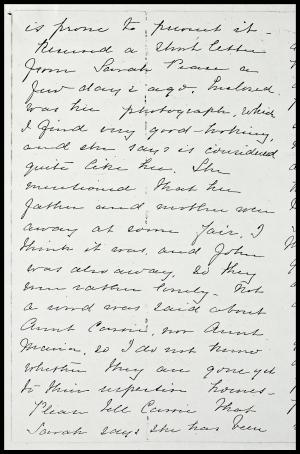 is prone to prevent it.
Received a short letter
from Sarah Pease a
few days ago. Inclosed
was her photograph, which
I find very good-looking,
and she says is considered
quite like her. She
mentioned that her
father and mother were
away at some fair, I
think it was, and John
was also away, so they
were rather lonely. Not
a word was said about
Aunt Carrie, nor Aunt
Maria, so I do not know
whether they are gone yet
to their respective homes-
Please tell Carrie that
Sarah says she has been